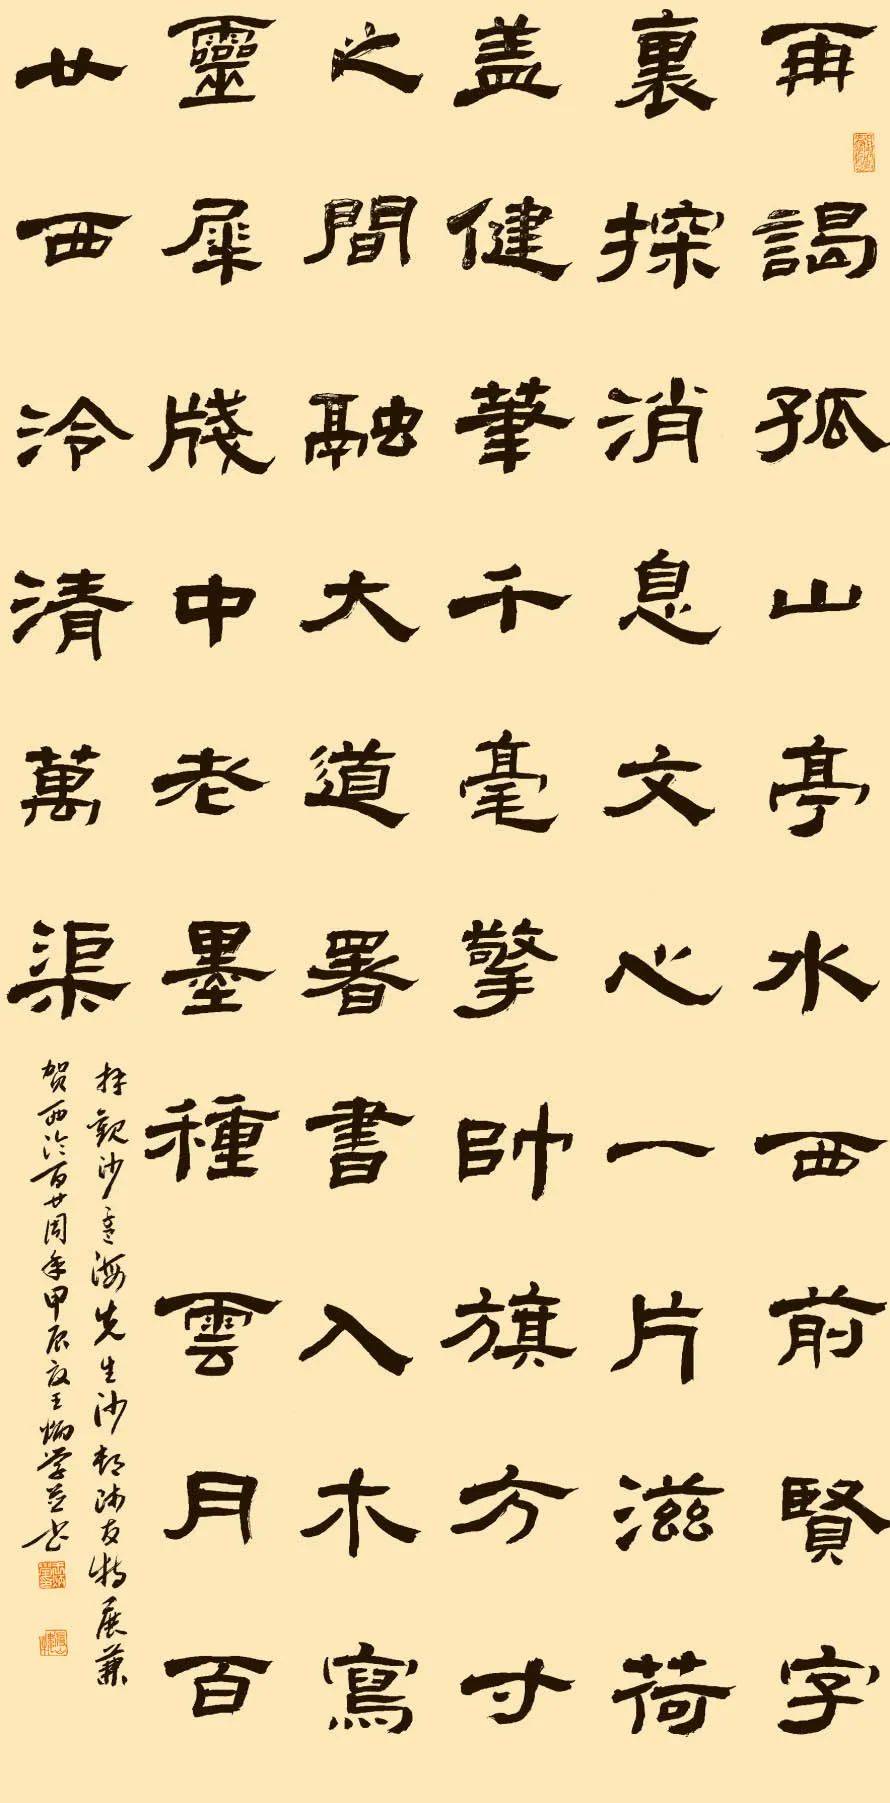 再謁孤山亭水西前賢字
裏探消息文心一片滋荷
盖健筆千毫擎帥旗方寸
之間融大道署書入木寫
靈犀牋中老墨種雲月百
廿西泠清萬渠
拜觀沙孟海先生沙邨師友特展兼
贺西泠百廿周年甲辰夏王炳学并书